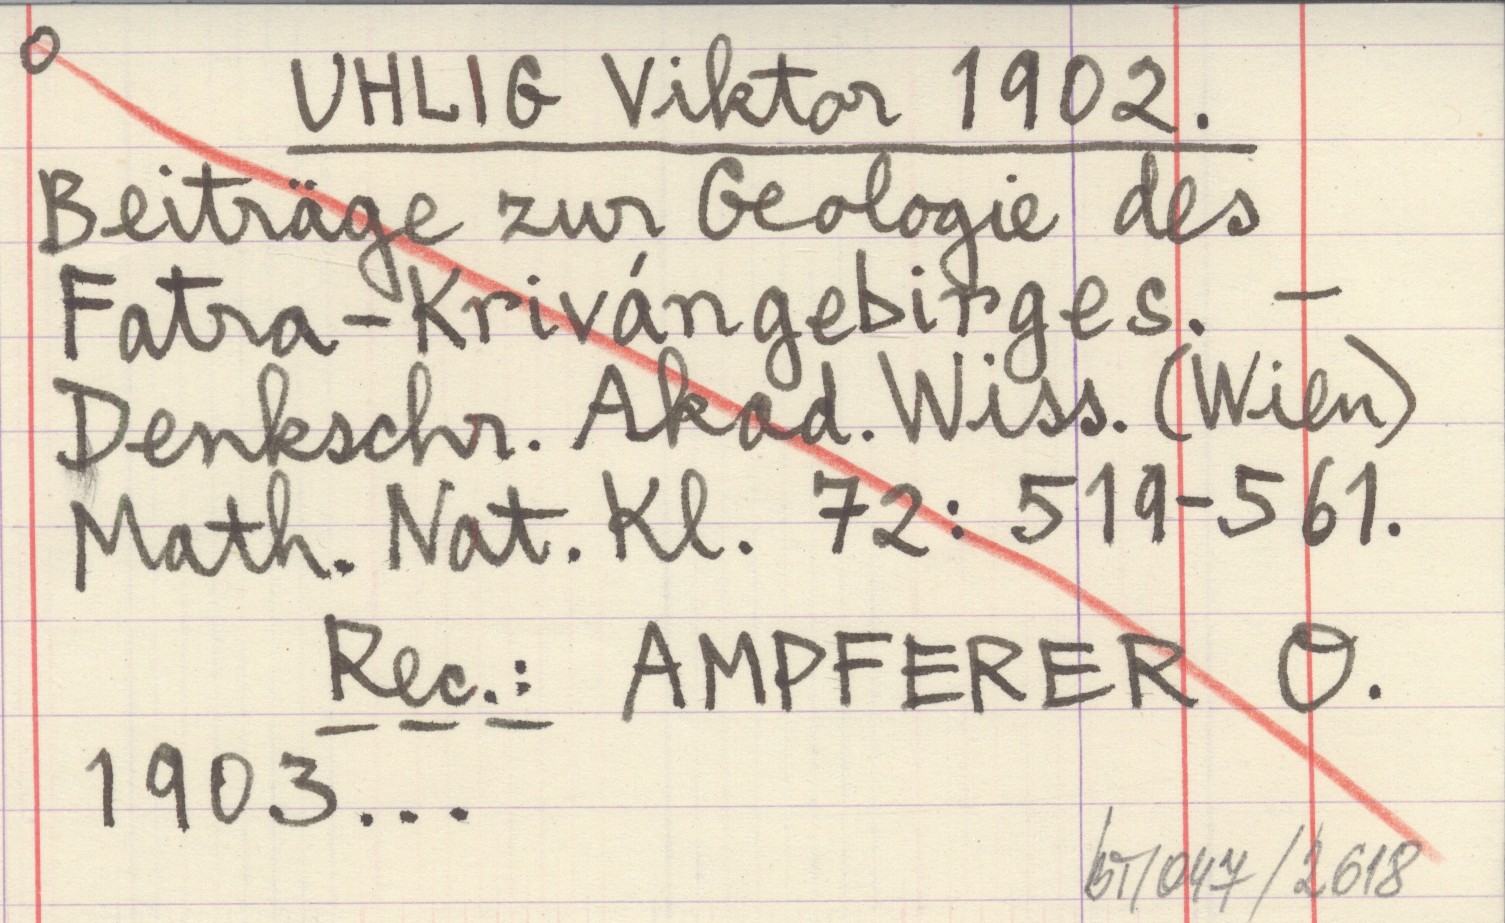 UHLIG Viktor 1902.
Beiträge zur Geologie des
Fatra-Krivángebirges. –
Denkschr. Akad. Wiss. (Wien)
Math. Nat. Kl. 72: 519-561.
Rec.: AMPFERER O.
1903...
/047/2618